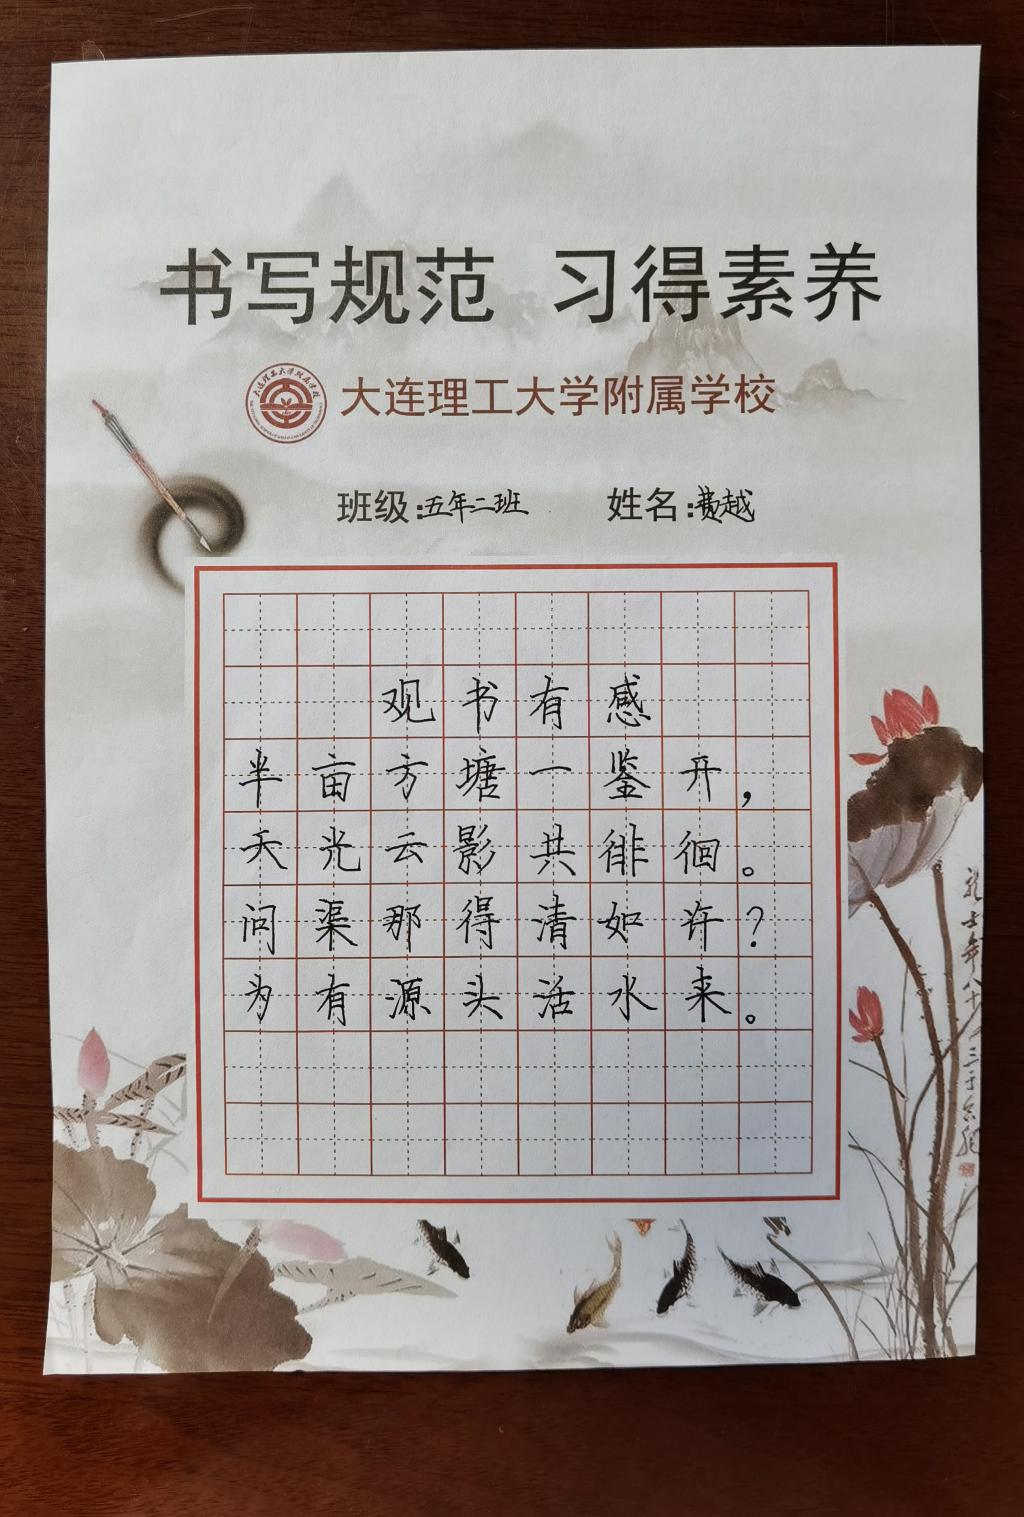 书写规范 习得素养
大连理工大学附属学校
大连理工大学附属学校
班级:五年二班 姓名:费越
观书有感
半亩方塘一鉴开，
天光云影共徘徊。
问渠那得清如许？
为有源头活水来。